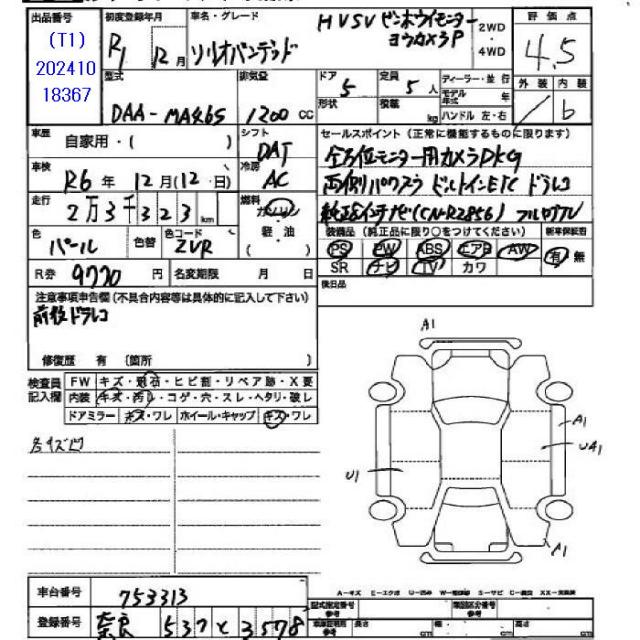 出品番号 初度登録年月 車名・グレード HVSV ゼンホウイモニター 2WD 評価点
(T1) R1 12月 ソリオバンデッド ヨウカメラP ・4WD 4.5
202410
18367
型式 排気量 ドア 定員 ディーラー・並行 外装 内装
DAA-MA46S 1200 CC 5 5人 モデル年式 年 b
形状 積載 kg ハンドル 左・右
車歴 自家用・( ) シフト セールスポイント(正常に機能するものに限ります)
DAT 全方位モニター用カメラPKG
車検 R6年12月(12・日) 冷房 AC 両側パワスラ ビルトインETC ドラレコ
走行 2万3千323km 燃料 ガソリン 純正インチナビ(CN-R2856) フルセグTV
軽油
( )
色 パール 色替 色コード ZVR 装備品(純正品に限り○をつけてください) 新車保証書
PS PW ABS エアB AW 有・無
R券 9770円 名変期限 月 日 SR ナビ TV カワ
注意事項申告欄(不具合内容等は具体的に記入して下さい) 後日品
前後ドラレコ
修復歴 有(箇所 )
検査員記入欄 FW キズ・飛石・ヒビ割・リペア跡・X要
内装 キズ・汚レ・コゲ・穴・スレ・ヘタリ・破レ
ドアミラー キズ・ワレ ホイール・キャップ キズ・ワレ
各キズ凹
A1
A1
UA1
U1
A1
車台番号 753313
A-キズ E-エクボ U-凹み W-補修跡 S-サビ C-腐食 XX-交換済
登録番号 奈良 537 と 3578
型式指定番号 参考 類別区分番号 参考
車両証明用 参考 長さ 幅 高さ